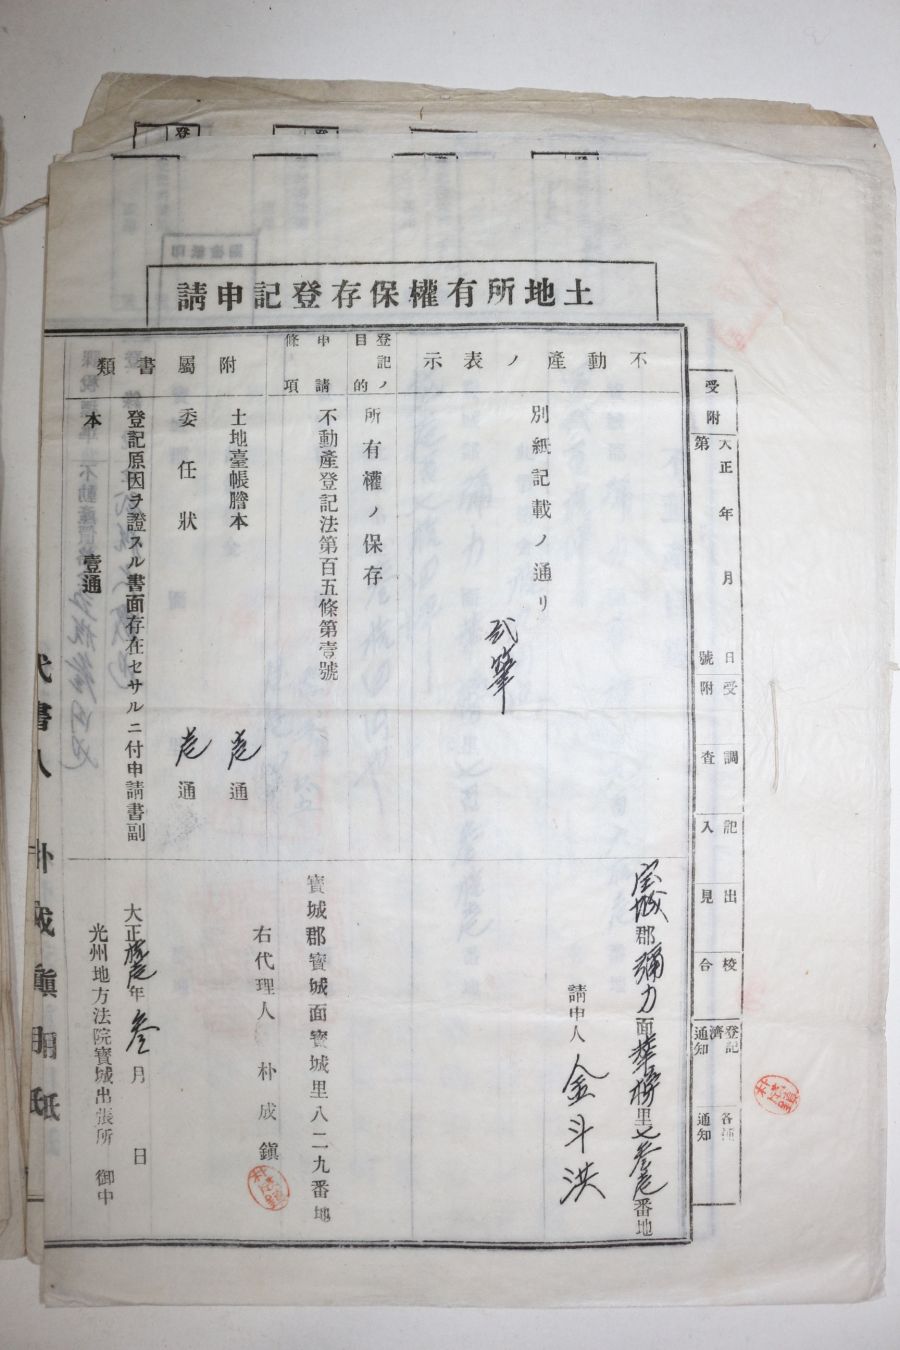 土地所有權保存登記申請
受附
大正 年 月 日
第 號
受附
調査
記入
出見
校合
登記濟通知
各種通知
不動產ノ表示
別紙記載ノ通リ
弐筆
登記ノ目的
所有權ノ保存
申請條項
不動產登記法第百五條第壹號
附屬書類
土地臺帳謄本 壱通
委任狀 壱通
登記原因ヲ證スル書面存在セサルニ付申請書副
本 壹通
宝城郡彌力面
里七参壱番地
請申人 金斗洪
寶城郡寶城面寶城里八二九番地
右代理人 朴成鎭
大正拾壱年参月 日
光州地方法院寶城出張所 御中
代書人